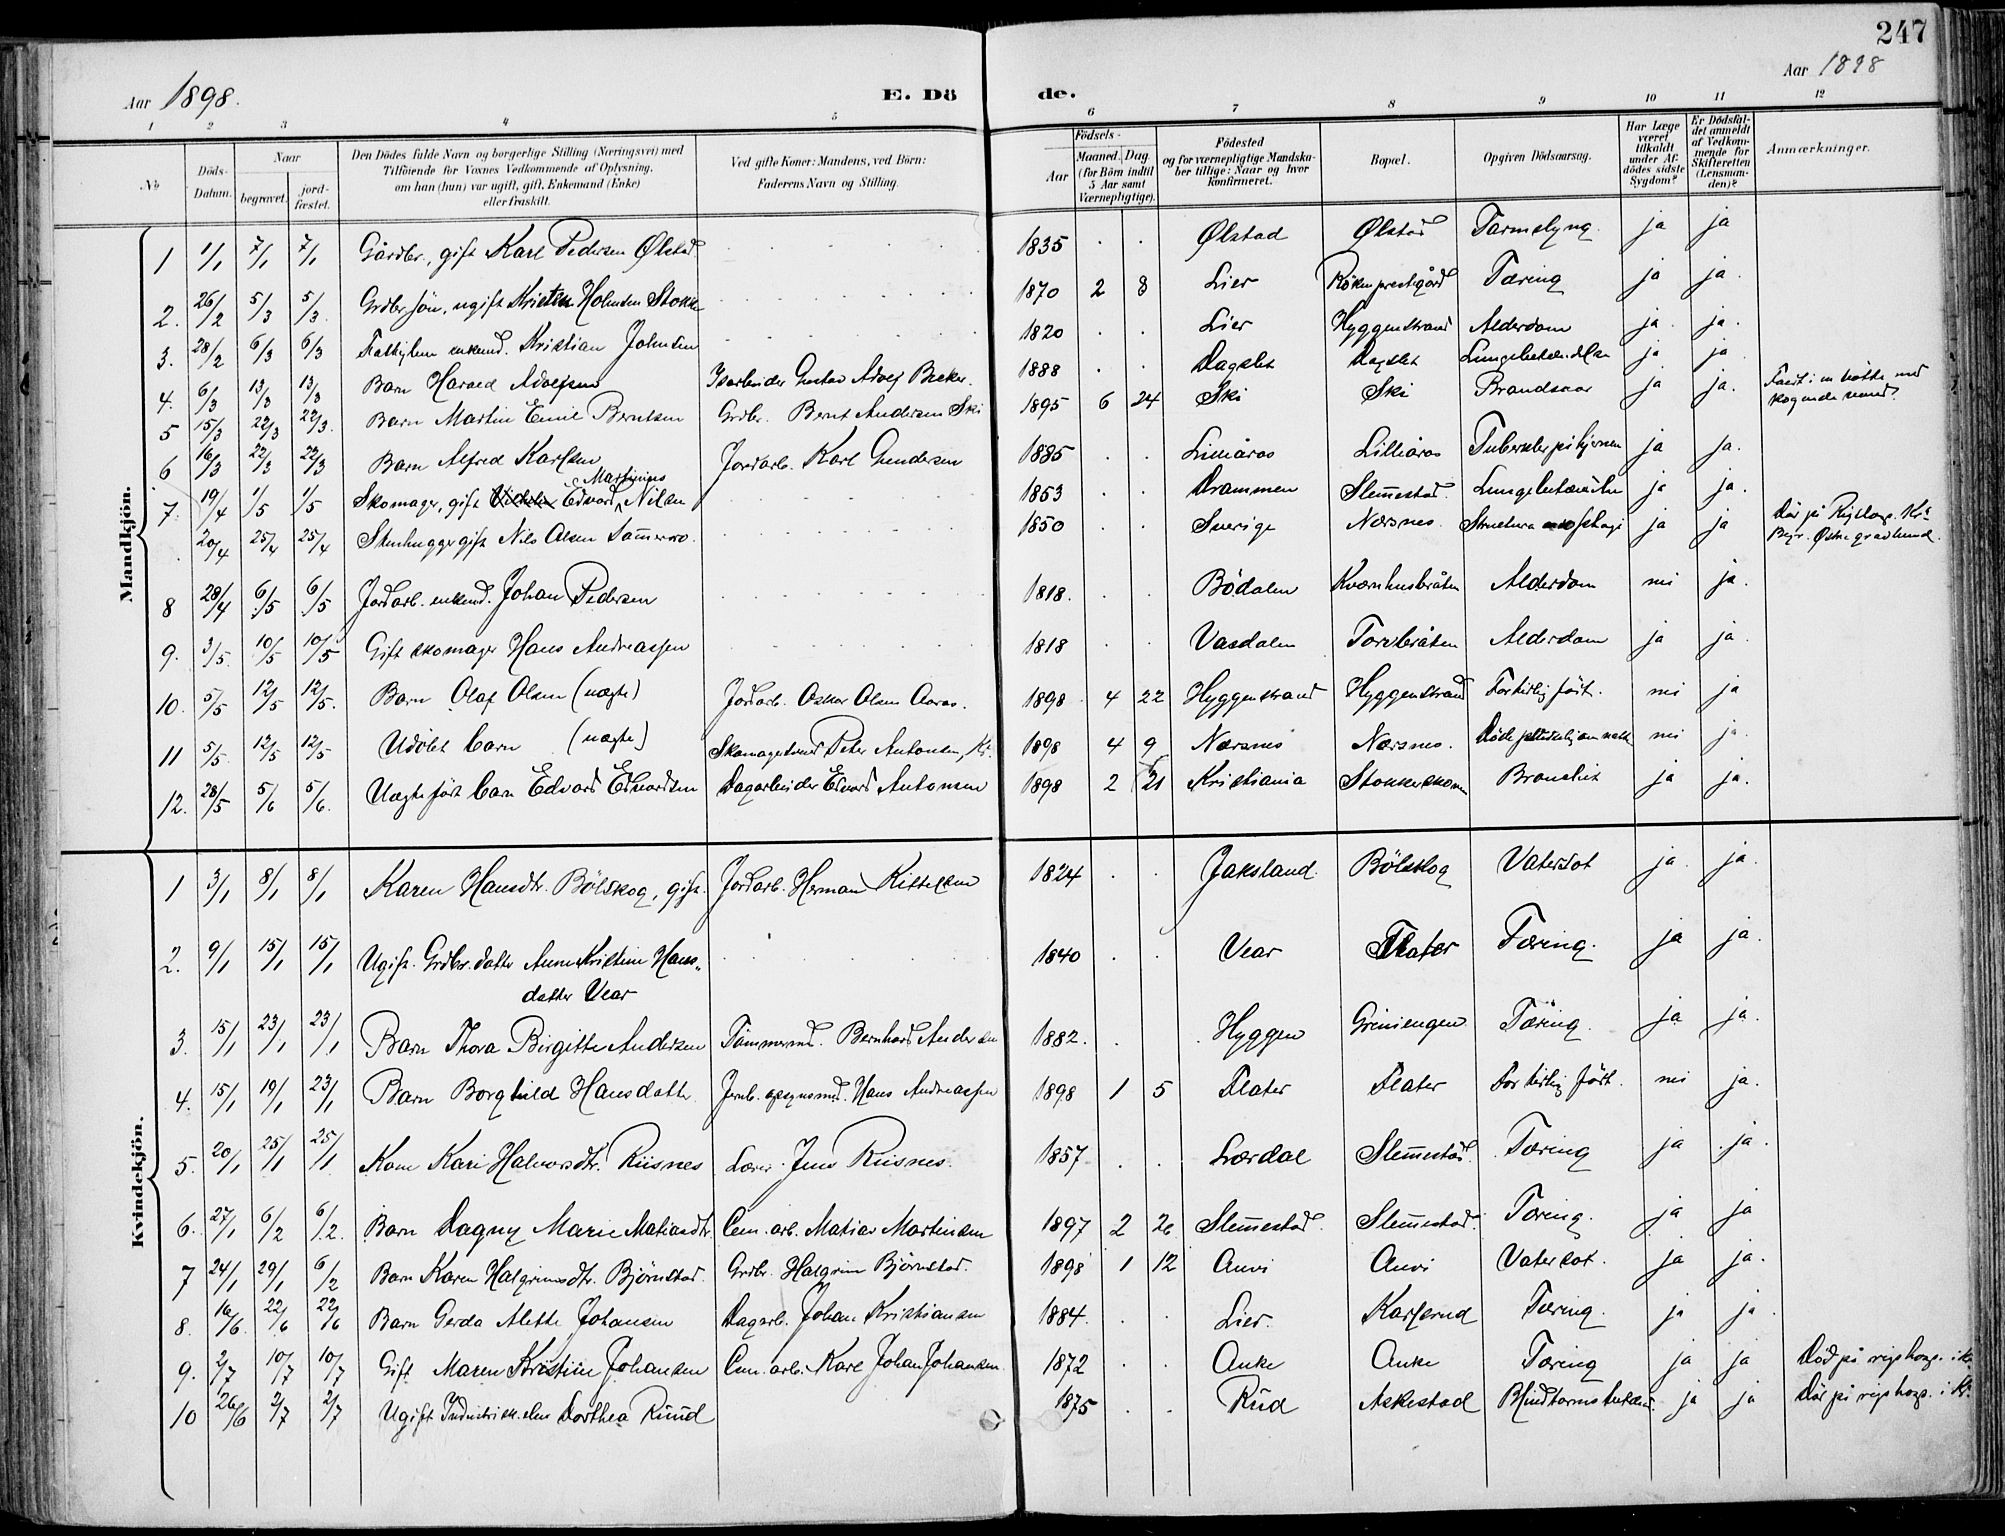 247
Aar 1898.
E. Dö de.
Aar 1898
1 2 3 4 5 6 7 8 9 10 11 12
No
Döds-Datum.
Naar begravet. jordfæstet.
Den Dödes fulde Navn og borgerlige Stilling (Næringsvei) med
Tilföiende for Voxnes Vedkommende af Oplysning,
om han (hun) var ugift, gift, Enkemand (Enke)
eller fraskilt.
Ved gifte Koner: Mandens, ved Börn:
Faderens Navn og Stilling.
Födsels-
Aar Maaned. Dag.
(for Börn indtil 5 Aar samt Værnepligtige).
Födested
og for værnepligtige Mandskaber tillige: Naar og hvor konfirmeret.
Bopæl.
Opgiven Dödsaarsag.
Har Læge været tilkaldt under Afdödes sidste Sygdom?
Er Dödsfaldet anmeldt af Vedkommende for Skifteretten (Lensmanden)?
Anmærkninger.
Mandkjön.
1 1/1 7/1 7/1 Gårdbr., gift Karl Pedersen Ølstad 1835 Ølstad Ølstad Tarmslyng. ja ja
2. 26/2 5/3 5/3. Grdbr sön, ugift Kristen Holmsen Stokke 1870 2 8 Lier Röken prestegård Tæring ja ja.
3. 28/2 6/3 6/3 enkemd. Kristian Johnsen 1820 Lier Hyggenstrand Alderdom ja ja.
4. 6/3 13/3 13/3 Barn Harald Adolfsen Isarbeider Gustav Adolf Becker. 1888 Dagslet Dagslet ja ja
5 15/3 22/3 22/3. Barn Martin Emil Berntsen Grdbr. Bernt Andersen Ski 1895 6 24 Ski Ski Brandsaar ja ja. Faldt i en bøtte med kogende vand.
6 16/3 22/3 22/3 Barn Alfred Karlsen Jordarb. Karl Gundersen 1885 Lilliåros Lilliåros Tuberkler på hjernen ja ja.
7. 19/4 1/5 1/5 Skomager, gift Edvard Martinius Nilsen 1853 Drammen Slemmestad. ja ja.
20/4 25/4 25/4 Stenhugger gift Nils Olsen 1850 Sverige Nærsnes. ja ja Död på Rigshosp. Kra Begr. Østre gravlund.
8 28/4 6/5 6/5 Jordarb. enkemd. Johan Pedersen 1818. Bödalen Kværnhusbråten Alderdom nei ja.
9. 3/5. 10/5 10/5 Gift skomager Hans Andreassen 1818 Vasdalen Torvbråten Alderdom ja ja.
10. 5/5 12/5 12/5. Barn Olaf Olsen (uægte) Jordarb. Oskar Olsen Aaros. 1898 4 22 Hyggenstrand Hyggenstrand For tidlig födt. nei ja
11 5/5. 12/5 12/5 Udöbt barn (uægte) Skomagersvend Peter Antonsen, Kr. 1898 4 9 Nærsnes Nærsnes. nei ja.
12. 28/5 5/6 5/6. Uægte födt barn Edvard Edvardsen Dagarbeider Edvard Antonsen 1898 2 21 Kristiania Bronchit ja ja.
Kvindekjön.
1 3/1 8/1 8/1 Karen Hansdtr. Bölskog, gift. Jordarb. Herman Kittelsen 1824 Jaksland. Bölskog Vatersot ja ja.
2. 9/1 15/1 15/1 Ugift. Grdbr. datter Anne Kristine Hans„ datter Vear 1840 Vear Flater Tæring. ja ja.
3. 15/1 23/1 23/1 Barn Thora Birgitte Andersen Tömmermd. Bernhard Andersen 1882. Hyggen Griniengen Tæring. ja ja.
4. 15/1 19/1 23/1 Barn Borghild Hansdatter Jernb. opsynsmd. Hans Andreassen 1898 1 5 Flater Flater For tidlig födt. nei ja.
5. 20/1 25/1 25/1 Kone Kari Halvorsdtr. Riisnes Lærer. Jens Riisnes. 1857 Lærdal Slemmestad. Tæring ja ja.
6. 27/1 6/2 6/2. Barn Dagny Marie Matiasdtr. Cem. arb. Matias Martinsen 1897 2 26 Slemmestad. Slemmestad. Tæring. ja ja
7 24/1 29/1 6/2 Barn Karen Halgrimsdtr. Björnstad. Grdbr. Halgrim Björnstad. 1898 1 12 Auvi Auvi Vatersot. ja ja.
8. 16/6. 22/6 22/6 Barn Gerda Alette Johansen Dagarb. Johan Kristiansen 1884. Lier. Karlsrud Tæring. ja ja.
9. 2/7 10/7 10/7 Gift Maren Kristine Johansen Cem. arb. Karl Johan Johansen. 1872 Auke Auke Tæring ja ja Död på rigshosp. i Kr.
10 26/6 2/7 2/7 Ugift Dorthea Ruud 1875 Rud Askestad ja ja Död på rigshosp. i Kr.